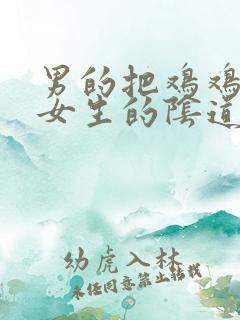 男的把鸡鸡
女生的陰道
幼虎入林
未经同意禁止转载